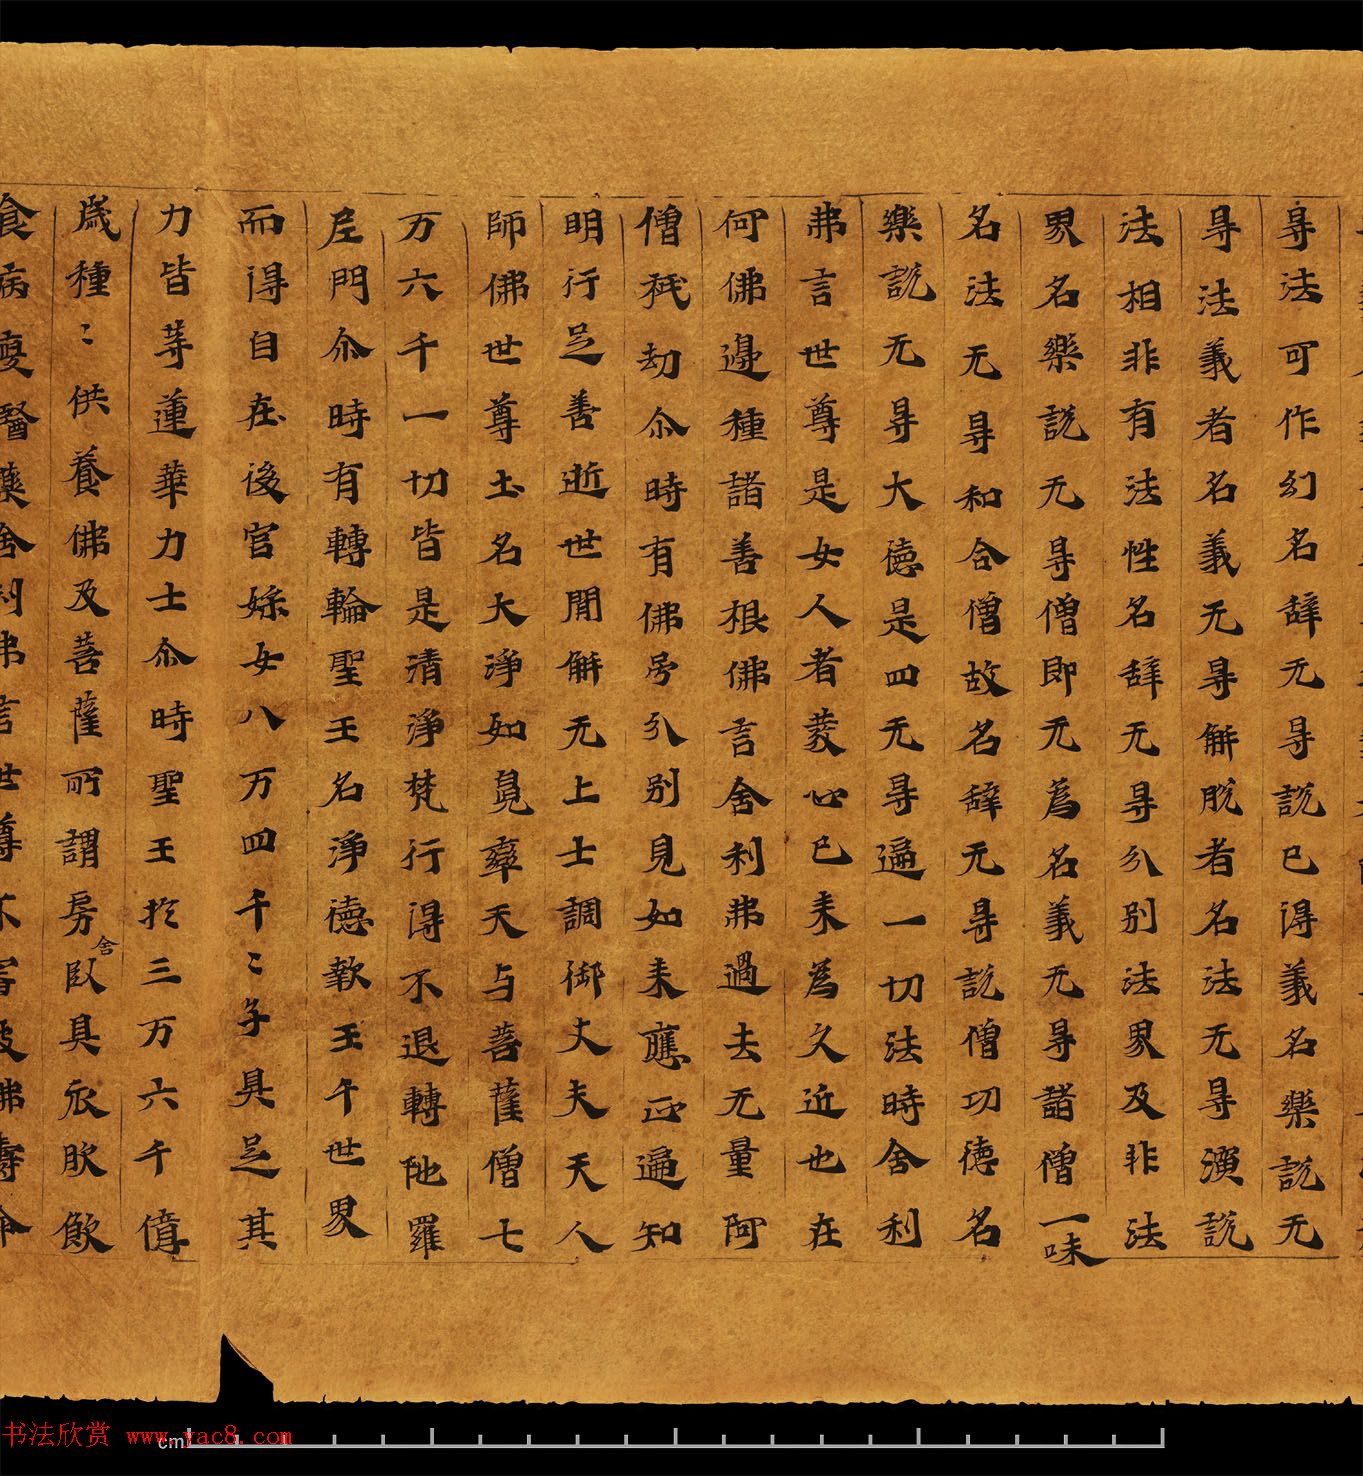 㝵法可作幻名辞无㝵說已得義名樂說无
㝵法義者名義无㝵解脫者名法无㝵演說
法相非有法性名辞无㝵分别法界及非法
界名樂說无㝵僧即无為名義无㝵諸僧一味
名法无㝵和合僧故名辞无㝵說僧功德名
樂說无㝵大德是四无㝵遍一切法時舍利
弗言世尊是女人者發心已来為久近也在
何佛邊種諸善根佛言舍利弗過去无量阿
僧祇劫尒時有佛号分别見如来應正遍知
明行足善逝世間解无上士調御丈夫天人
師佛世尊土名大淨如兜率天与菩薩僧七
万六千一切皆是清淨梵行得不退轉陁羅
尼門尒時有轉輪聖王名淨德歡王千世界
而得自在後官婇女八万四千〻子具足其
力皆等蓮華力士尒時聖王扵三万六千億
歲種〻供養佛及菩薩所謂房舍卧具衣服飲
食病瘦醫藥舍利弗言世尊不審彼佛壽命
書法欣赏 www.yac8.com
cm